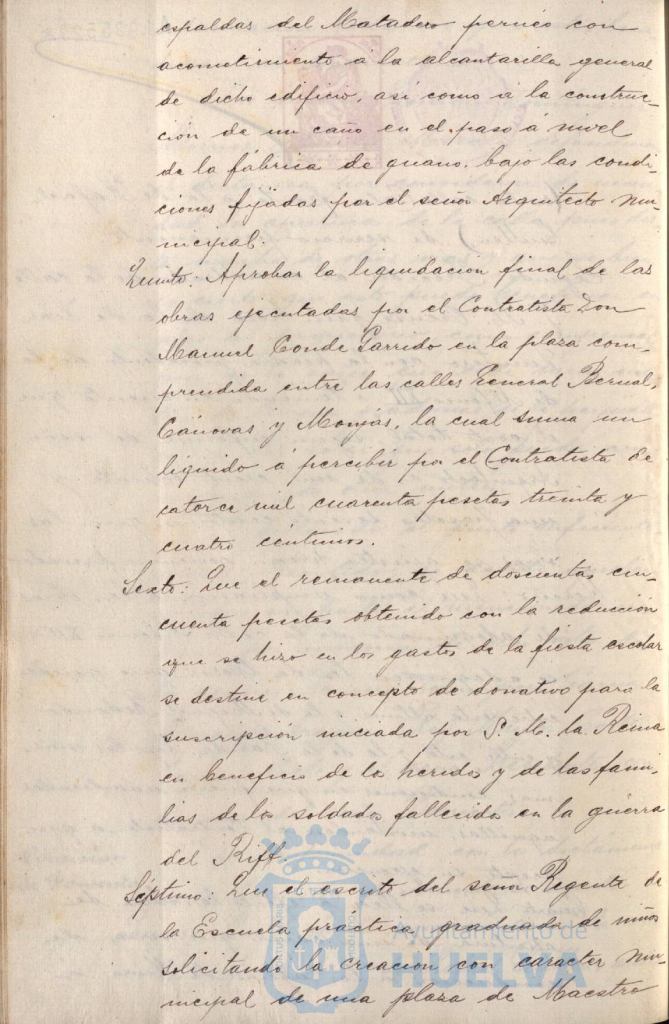 espaldas del Matadero perneo con
acometimiento á la alcantarilla general
de dicho edificio, así como á la construc-
ción de un caño en el paso á nivel
de la fábrica de guano, bajo las condi-
ciones fijadas por el señor Arquitecto mu-
nicipal.
Quinto: Aprobar la liquidación final de las
obras ejecutadas por el Contratista Don
Manuel Conde Garrido en la plaza com-
prendida entre las calles General Bernal,
Cánovas y Monjas, la cual suma un
líquido á percibir por el Contratista de
catorce mil cuarenta pesetas treinta y
cuatro céntimos.
Sexto: Que el remanente de doscientas cin-
cuenta pesetas obtenido con la reducción
que se hizo en los gastos de la fiesta escolar
se destine en concepto de donativo para la
suscripción iniciada por S. M. la Reina
en beneficio de los heridos y de las fami-
lias de los soldados fallecidos en la guerra
del Riff.
Séptimo: Que el escrito del señor Regente de
la Escuela práctica graduada de niños
solicitando la creación con caracter mu-
nicipal de una plaza de Maestro
Ayuntamiento de
HUELVA